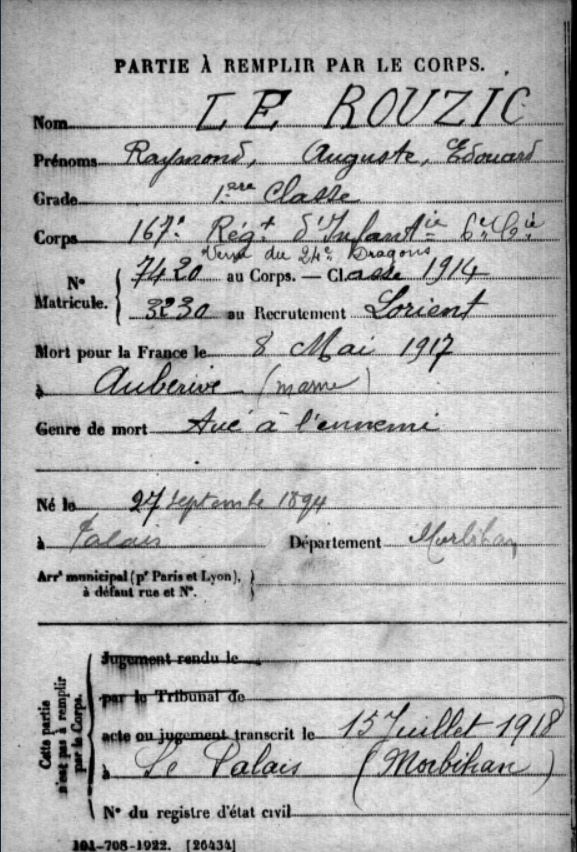 PARTIE À REMPLIR PAR LE CORPS.
Nom LE ROUZIC
Prénoms Raymond, Auguste, Edouard
Grade 1ère Classe
Corps 167e Régt d'Infantie 6e Cie
Venu du 24e Dragons
N° Matricule. { 7420 au Corps. — Classe 1914
3230 au Recrutement Lorient
Mort pour la France le 8 Mai 1917
à Auberive (marne)
Genre de mort Tué à l'ennemi
Né le 27 septembre 1894
à Palais Département Morbihan
Arrt municipal (pr Paris et Lyon),
à défaut rue et N°. }
Cette partie n'est pas à remplir par le Corps. {
Jugement rendu le
par le Tribunal de
acte ou jugement transcrit le 15 Juillet 1918
à Le Palais (Morbihan)
N° du registre d'état civil
101-708-1922. [26434]